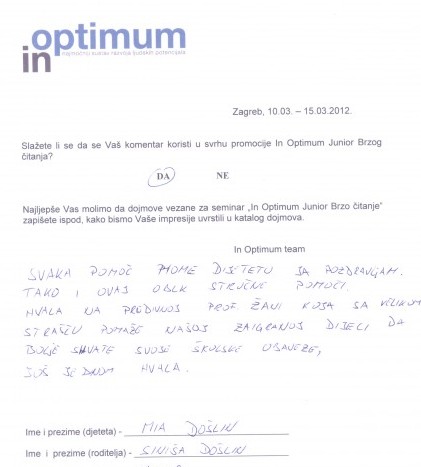 in optimum
Zagreb, 10.03. – 15.03.2012.
Slažete li se da se Vaš komentar koristi u svrhu promocije In Optimum Junior Brzog
čitanja?
DA NE
Najljepše Vas molimo da dojmove vezane za seminar „In Optimum Junior Brzo čitanje“
zapišete ispod, kako bismo Vaše impresije uvrstili u katalog dojmova.
In Optimum team
SVAKA POMOĆ MOME DIJETETU JA POZDRAVLJAM.
TAKO I OVAJ OBLIK STRUČNE POMOĆI.
HVALA NA PREDIVNOJ PROF. ŽANI KOJA SA VELIKOM
STRAŠĆU POMAŽE NAŠOJ ZAIGRANOJ DJECI DA
BOLJE SHVATE SVOJE ŠKOLSKE OBAVEZE,
JOŠ JEDNOM HVALA.
Ime i prezime (djeteta) - MIA DOŠLIN
Ime i prezime (roditelja) - SINIŠA DOŠLIN